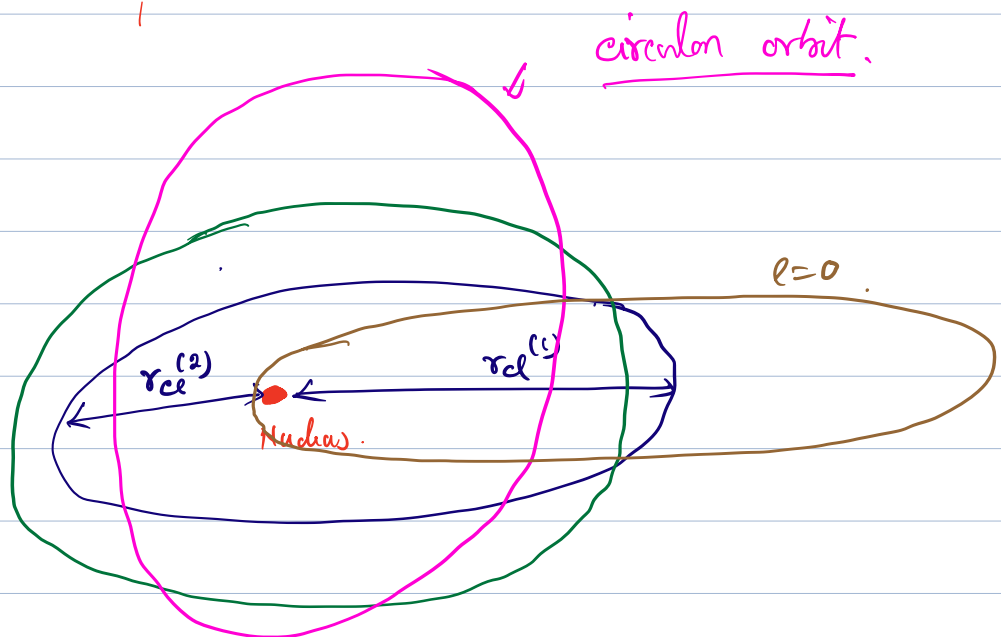 circular orbit.
l=0
r_cl^(2) r_cl^(1)
Nucleus.